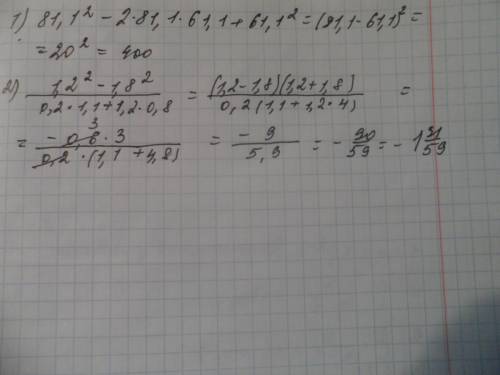 1) 81,1² - 2·81,1·61,1 + 61,1² = (81,1 - 61,1)² =
= 20² = 400
2) (1,2² - 1,8²)/(0,2·1,1 + 1,2·0,8) = ((1,2 - 1,8)(1,2 + 1,8))/(0,2(1,1 + 1,2·4)) =
= (- 0,6·3)/(0,2·(1,1 + 4,8)) = (- 9)/(5,9) = - 90/59 = - 1 31/59